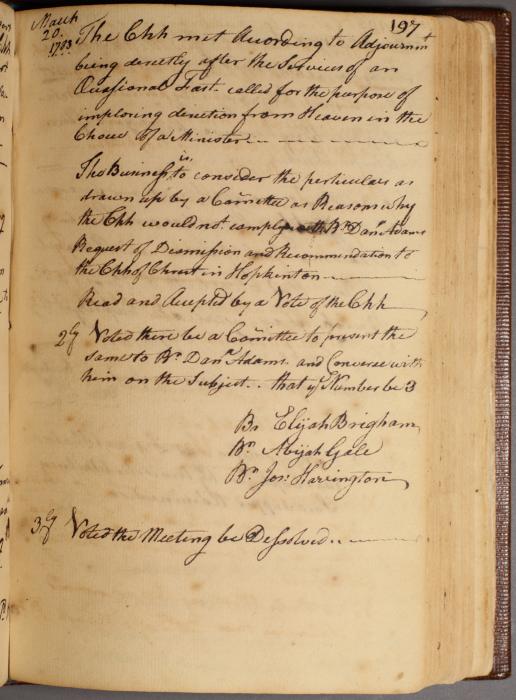 197
March
20.
1783
The Chh met According to Adjournmt
being derectly after the Services of an
Occasional Fast. called for the purpose of
imploring derection from Heaven in the
Choice of a Minister
The Buinness is, to consider the perticulars as
drawn up by a Comittee as Reasons why
the Chh wouldnot comply with Br. Danl. Adams
Request of Dismission and Recommendation to
the Chh of Christ in Hopkinton
Read and Accepted by a Vote of the Chh
2ly Voted there be a Comittee to present the
same to Br. Danl. Adams. and Converse with
him on the Subject.. that ye Number be 3
Br Elijah Brigham
Br. Abijah Gale
Br. Jos: Harrington
3ly Voted the Meeting be Dessolved..